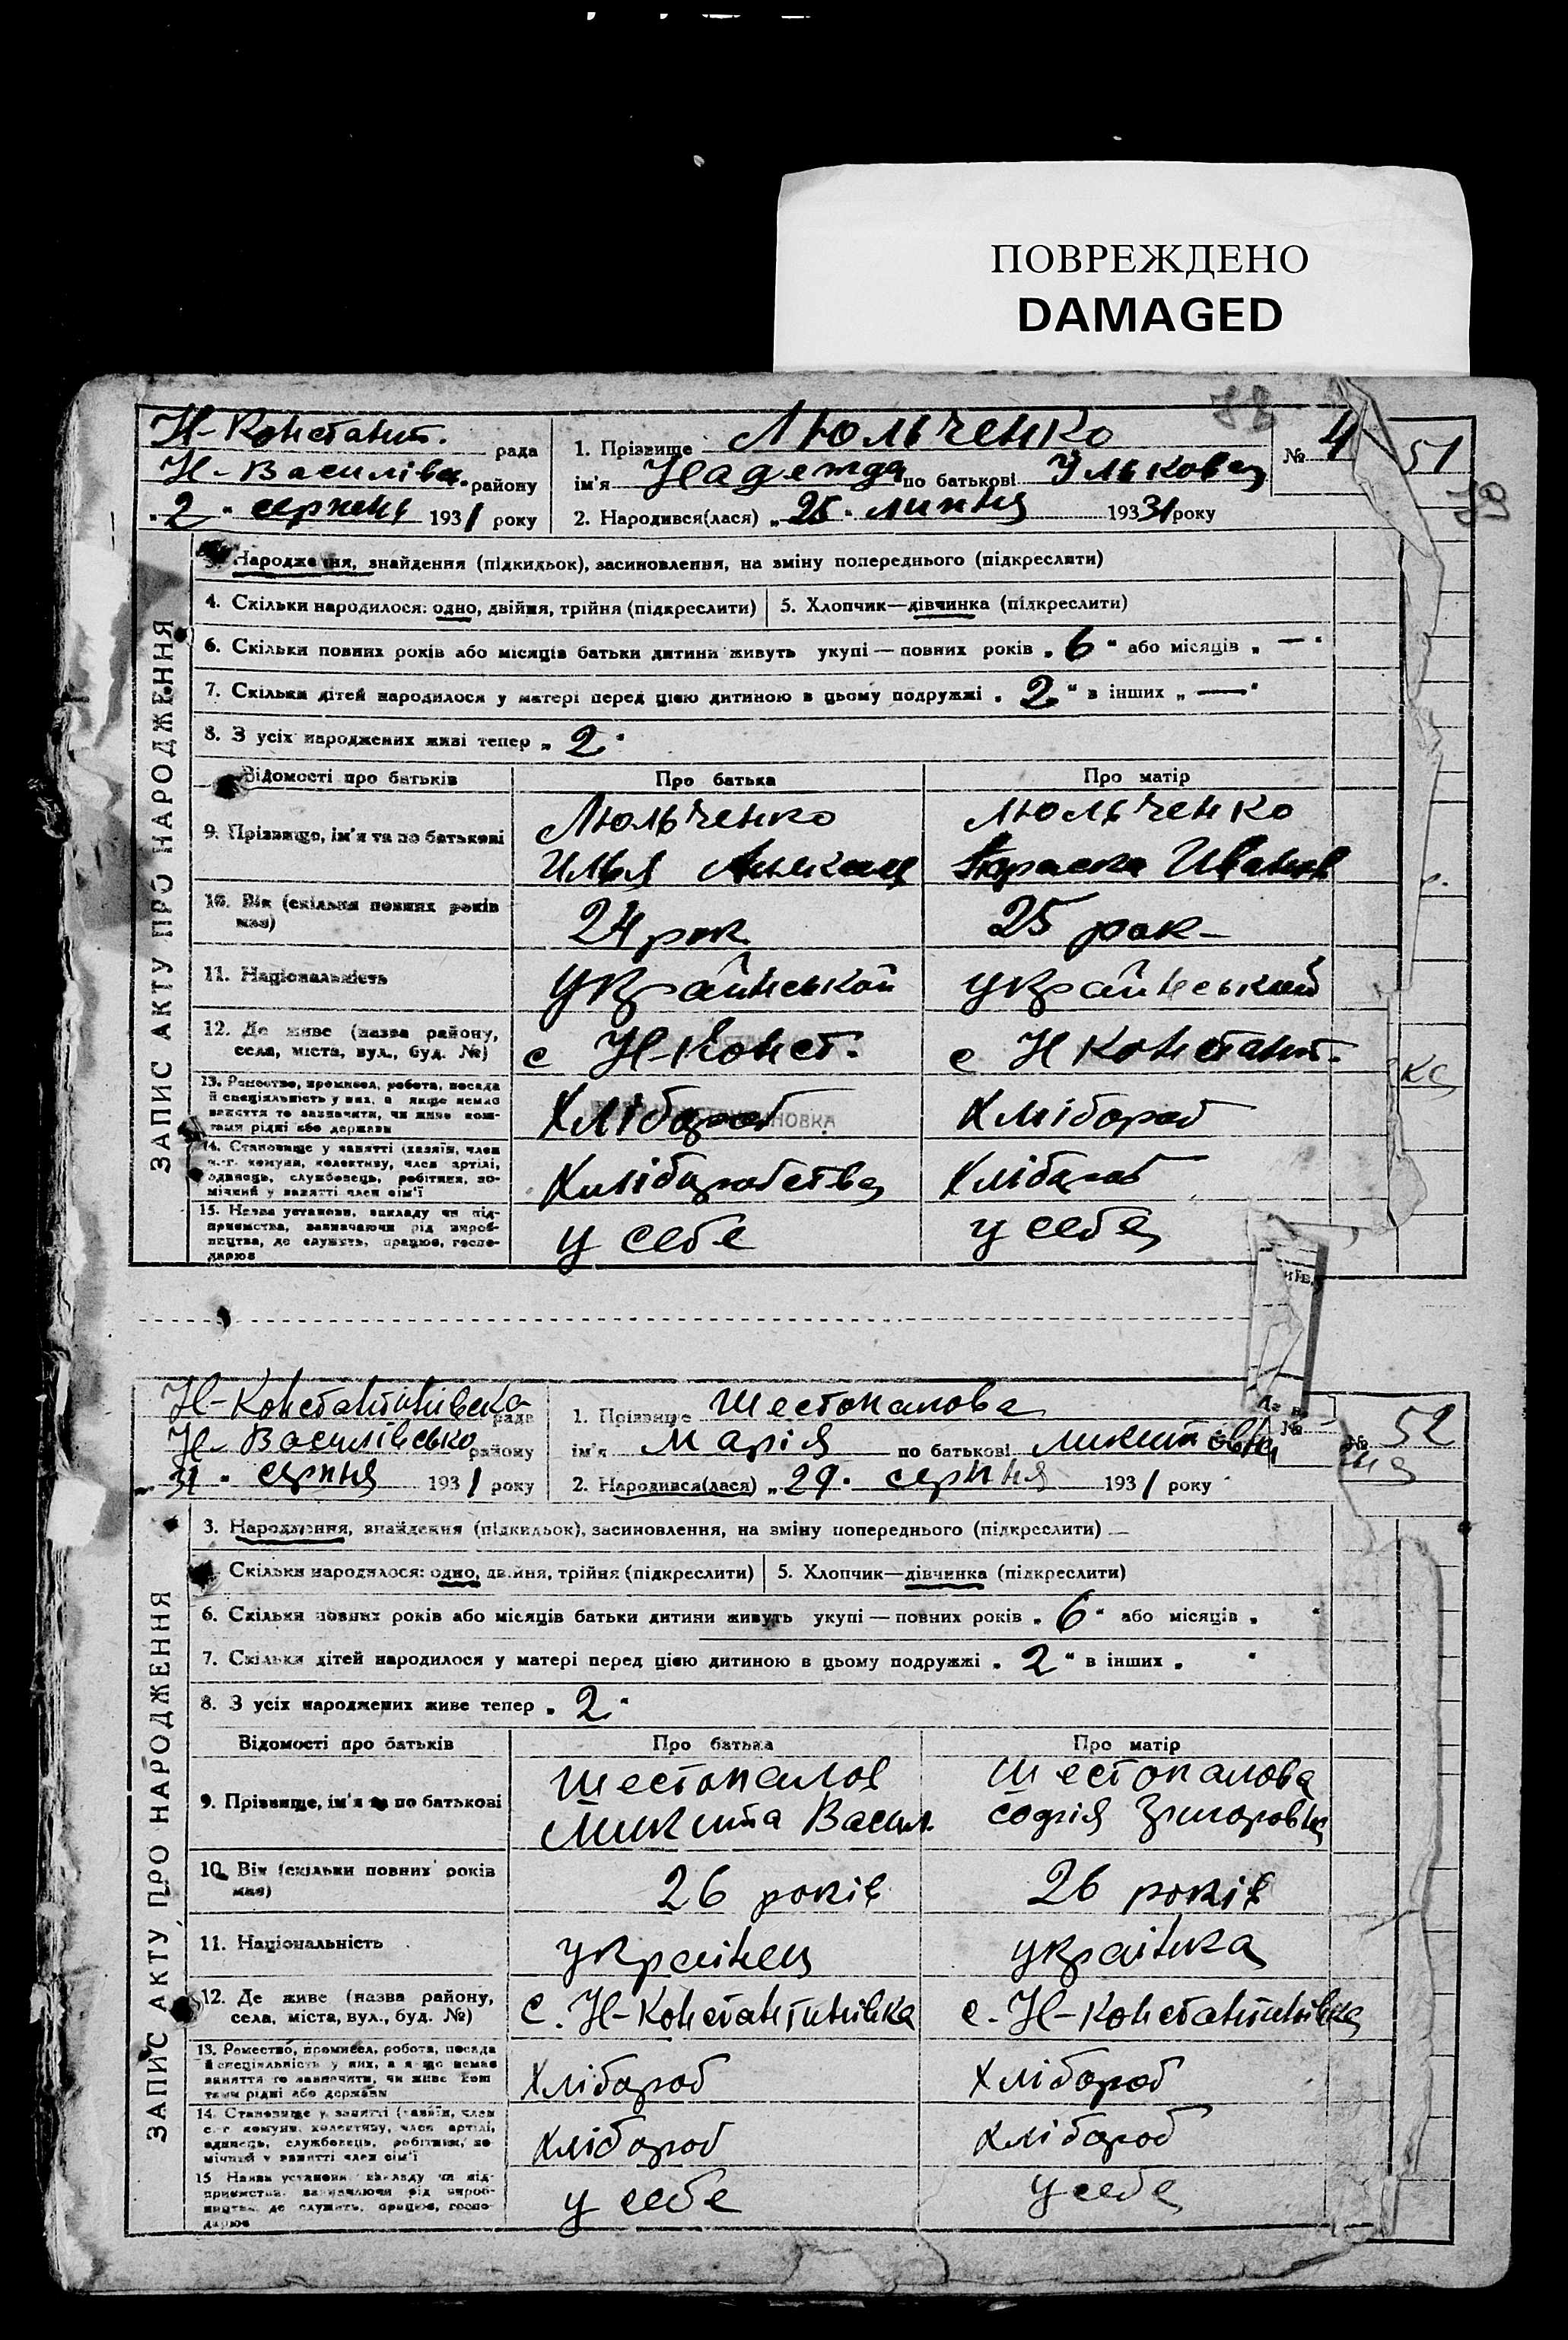 ПОВРЕЖДЕНО
DAMAGED
Н-Констант. рада
Н-Василівк. району
„2“ серпень 1931 року
1. Прізвище Люльченко
ім'я Надежда по батькові
2. Народився(лася) „25“ липня 19331 року
№ 4
51
ЗАПИС АКТУ ПРО НАРОДЖЕННЯ
Народження, знайдення (підкидьок), засиновлення, на зміну попереднього (підкреслити)
4. Скільки народилося: одно, двійня, трійня (підкреслити)
5. Хлопчик—дівчинка (підкреслити)
6. Скільки повних років або місяців батьки дитини живуть укупі — повних років „6“ або місяців „—“
7. Скільки дітей народилося у матері перед цією дитиною в цьому подружжі „2“ в інших „—“
8. З усіх народжених живі тепер „2“
Відомості про батьків Про батька Про матір
9. Прізвище, ім'я та по батькові
Люльченко Люльченко
Илья Иванов
10. Вік (скільки повних років має)
24 рок 25 рок-
11. Національність
український український
12. Де живе (назва району,
села, міста, вул., буд. №)
с Н-Конст. с Н Констант.
13. Ремество, промисел, робота, посада
й спеціяльність у них, а якщо немає
заняття то зазначити, чи живе кош-
тами рідні або держави
Хлібороб Хлібороб
14. Становище у занятті (хазяїн, член
с.-г. комуни, колективу, член артілі,
одинець, службовець, робітник, по-
мічний у занятті член сім'ї
Хліборобства Хлібороб
15. Назва установи, закладу чи під-
приємства, зазначаючи рід вироб-
ництва, де служить, працює, госпо-
дарює
у себе у себе
Н-Константинівска рада
Н-Василівсько району
„31“ серпня 1931 року
1. Прізвище Шестопалова
ім'я Марія по батькові Микитовна
2. Народився(лася) „29“ серпня 1931 року
№
52
ЗАПИС АКТУ ПРО НАРОДЖЕННЯ
3. Народження, знайдення (підкидьок), засиновлення, на зміну попереднього (підкреслити)
Скільки народилося: одно, двійня, трійня (підкреслити)
5. Хлопчик—дівчинка (підкреслити)
6. Скільки повних років або місяців батьки дитини живуть укупі — повних років „6“ або місяців „ “
7. Скільки дітей народилося у матері перед цією дитиною в цьому подружжі „2“ в інших „ “
8. З усіх народжених живе тепер „2“
Відомості про батьків Про батька Про матір
9. Прізвище, ім'я та по батькові
Шестопалов Шестопалова
Микита Васил. Софія Григоровна
10. Вік (скільки повних років
має)
26 років 26 років
11. Національність
українец українка
12. Де живе (назва району,
села, міста, вул., буд. №)
с. Н-Константинівка с. Н-Константинівка
13. Ремество, промисел, робота, посада
й спеціяльність у них, а якщо немає
заняття то зазначити, чи живе кош
тами рідні або держави
Хлібороб Хлібороб
14. Становище у занятті (хазяїн, член
с.-г. комуни, колективу, член артілі,
одинець, службовець, робітник, по-
мічний у занятті член сім'ї
хлібороб хлібороб
15. Назва установи, закладу чи під-
приємства, зазначаючи рід вироб-
ництва, де служить, працює, госпо-
дарює
у себе у себе